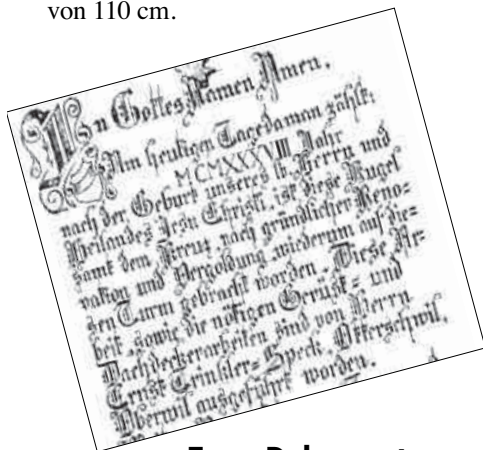 von 110 cm.
In Gottes Namen Amen.
Am heutigen Tage da man zählt:
MCMXXXVIII Jahr
nach der Geburt unseres lb. Herrn und
Heilandes Jesu Christi, ist diese Kugel
samt dem Kreuz nach gründlicher Reno-
vation und Vergoldung wiederum auf die-
sen Turm gebracht worden. Diese Ar-
beit, sowie die nötigen Gerüst- und
Dachdeckerarbeiten sind von Herrn
Ernst Speck
Oberwil ausgeführt worden.